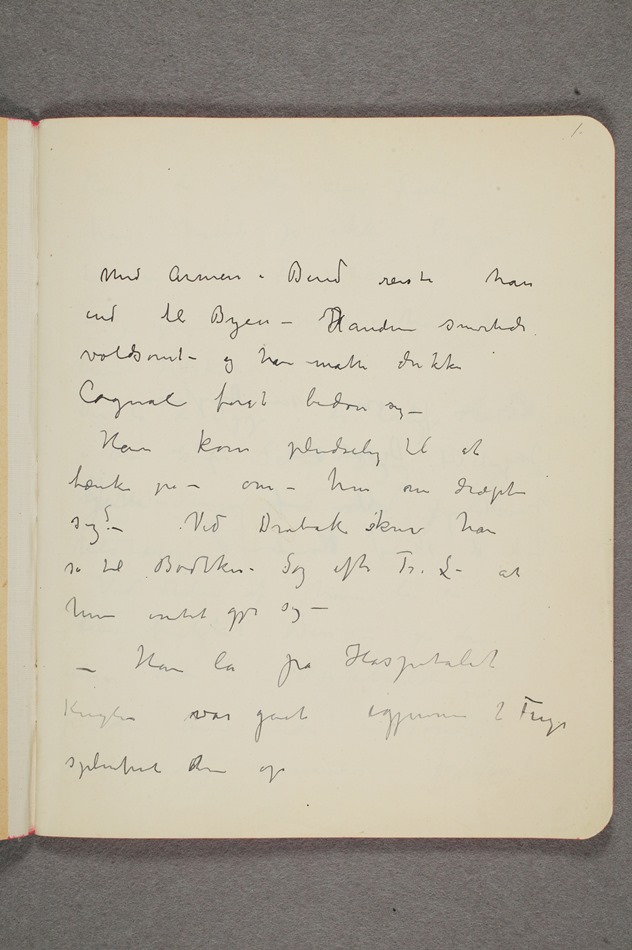 1.
Med Armen i Bind reiste han
ind til Byen – Handen smertede
voldsomt – og han matte drikke
Cognac for at bedøve sig –
Han kom pludselig til at
tænke pa – om – hun om dræpte
sig? – Ved Drøbak skrev han
sa til Bødtker – Søg efter Fr. L – at
hun intet gjør sig –
– Han la pa Hospitalet
Kuglen var gaat igjennem 2 Fingre
splintret den op